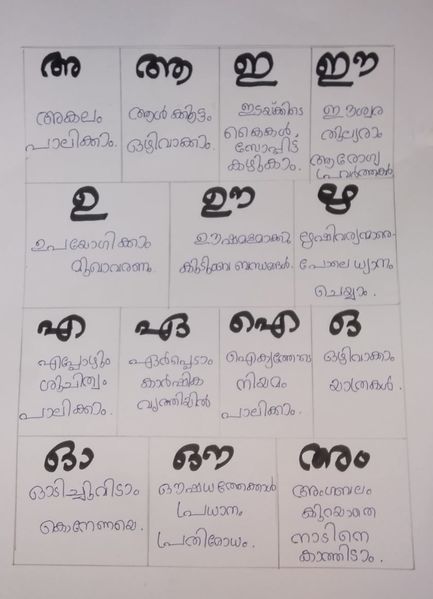 അ
അകലം
പാലിക്കാം.
ആ
ആൾ ക്കൂട്ടം
ഒഴിവാക്കാം.
ഇ
ഇടയ്ക്കിടെ
കൈകൾ
സോപ്പിട്ട്
കഴുകാം.
ഈ
ഈശ്വര
തുല്യരാം
ആരോഗ്യ
പ്രവർത്തകർ
ഉ
ഉപയോഗിക്കാം
മുഖാവരണം.
ഊ
ഊഷ്മളമാക്കി
കുടുംബ ബന്ധങ്ങൾ.
ഋ
ഋഷിവര്യന്മാരെ-
പോലെ ധ്യാനം
ചെയ്യാം.
എ
എപ്പോഴും
ശുചിത്വം
പാലിക്കാം.
ഏ
ഏർപ്പെടാം
കാർഷിക
വൃത്തിയിൽ
ഐ
ഐക്യത്തോടെ
നിയമം
പാലിക്കാം.
ഒ
ഒഴിവാക്കാം
യാത്രകൾ.
ഓ
ഓടിച്ചുവിടാം
കൊറോണയെ.
ഔ
ഔഷധത്തേക്കാൾ
പ്രധാനം
പ്രതിരോധം.
അം
അംഗബലം
കുറയാതെ
നാടിനെ
കാത്തിടാം.